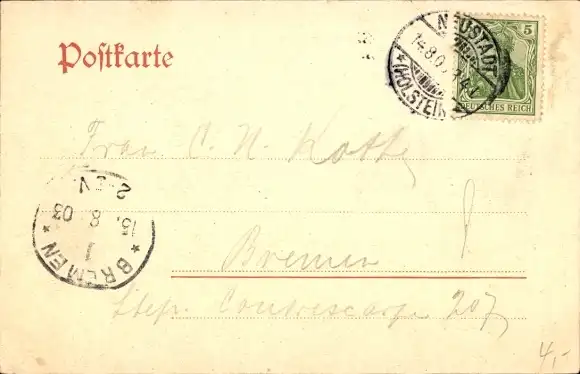 Postkarte
NEUSTADT
14.8.0
*(HOLSTEIN)
5
DEUTSCHES REICH
Frau C. N. Kothe
2-3 V.
15. 8. 03
1
* BREMEN *
Bremen
Steph. Contrescarpe 207
4,-